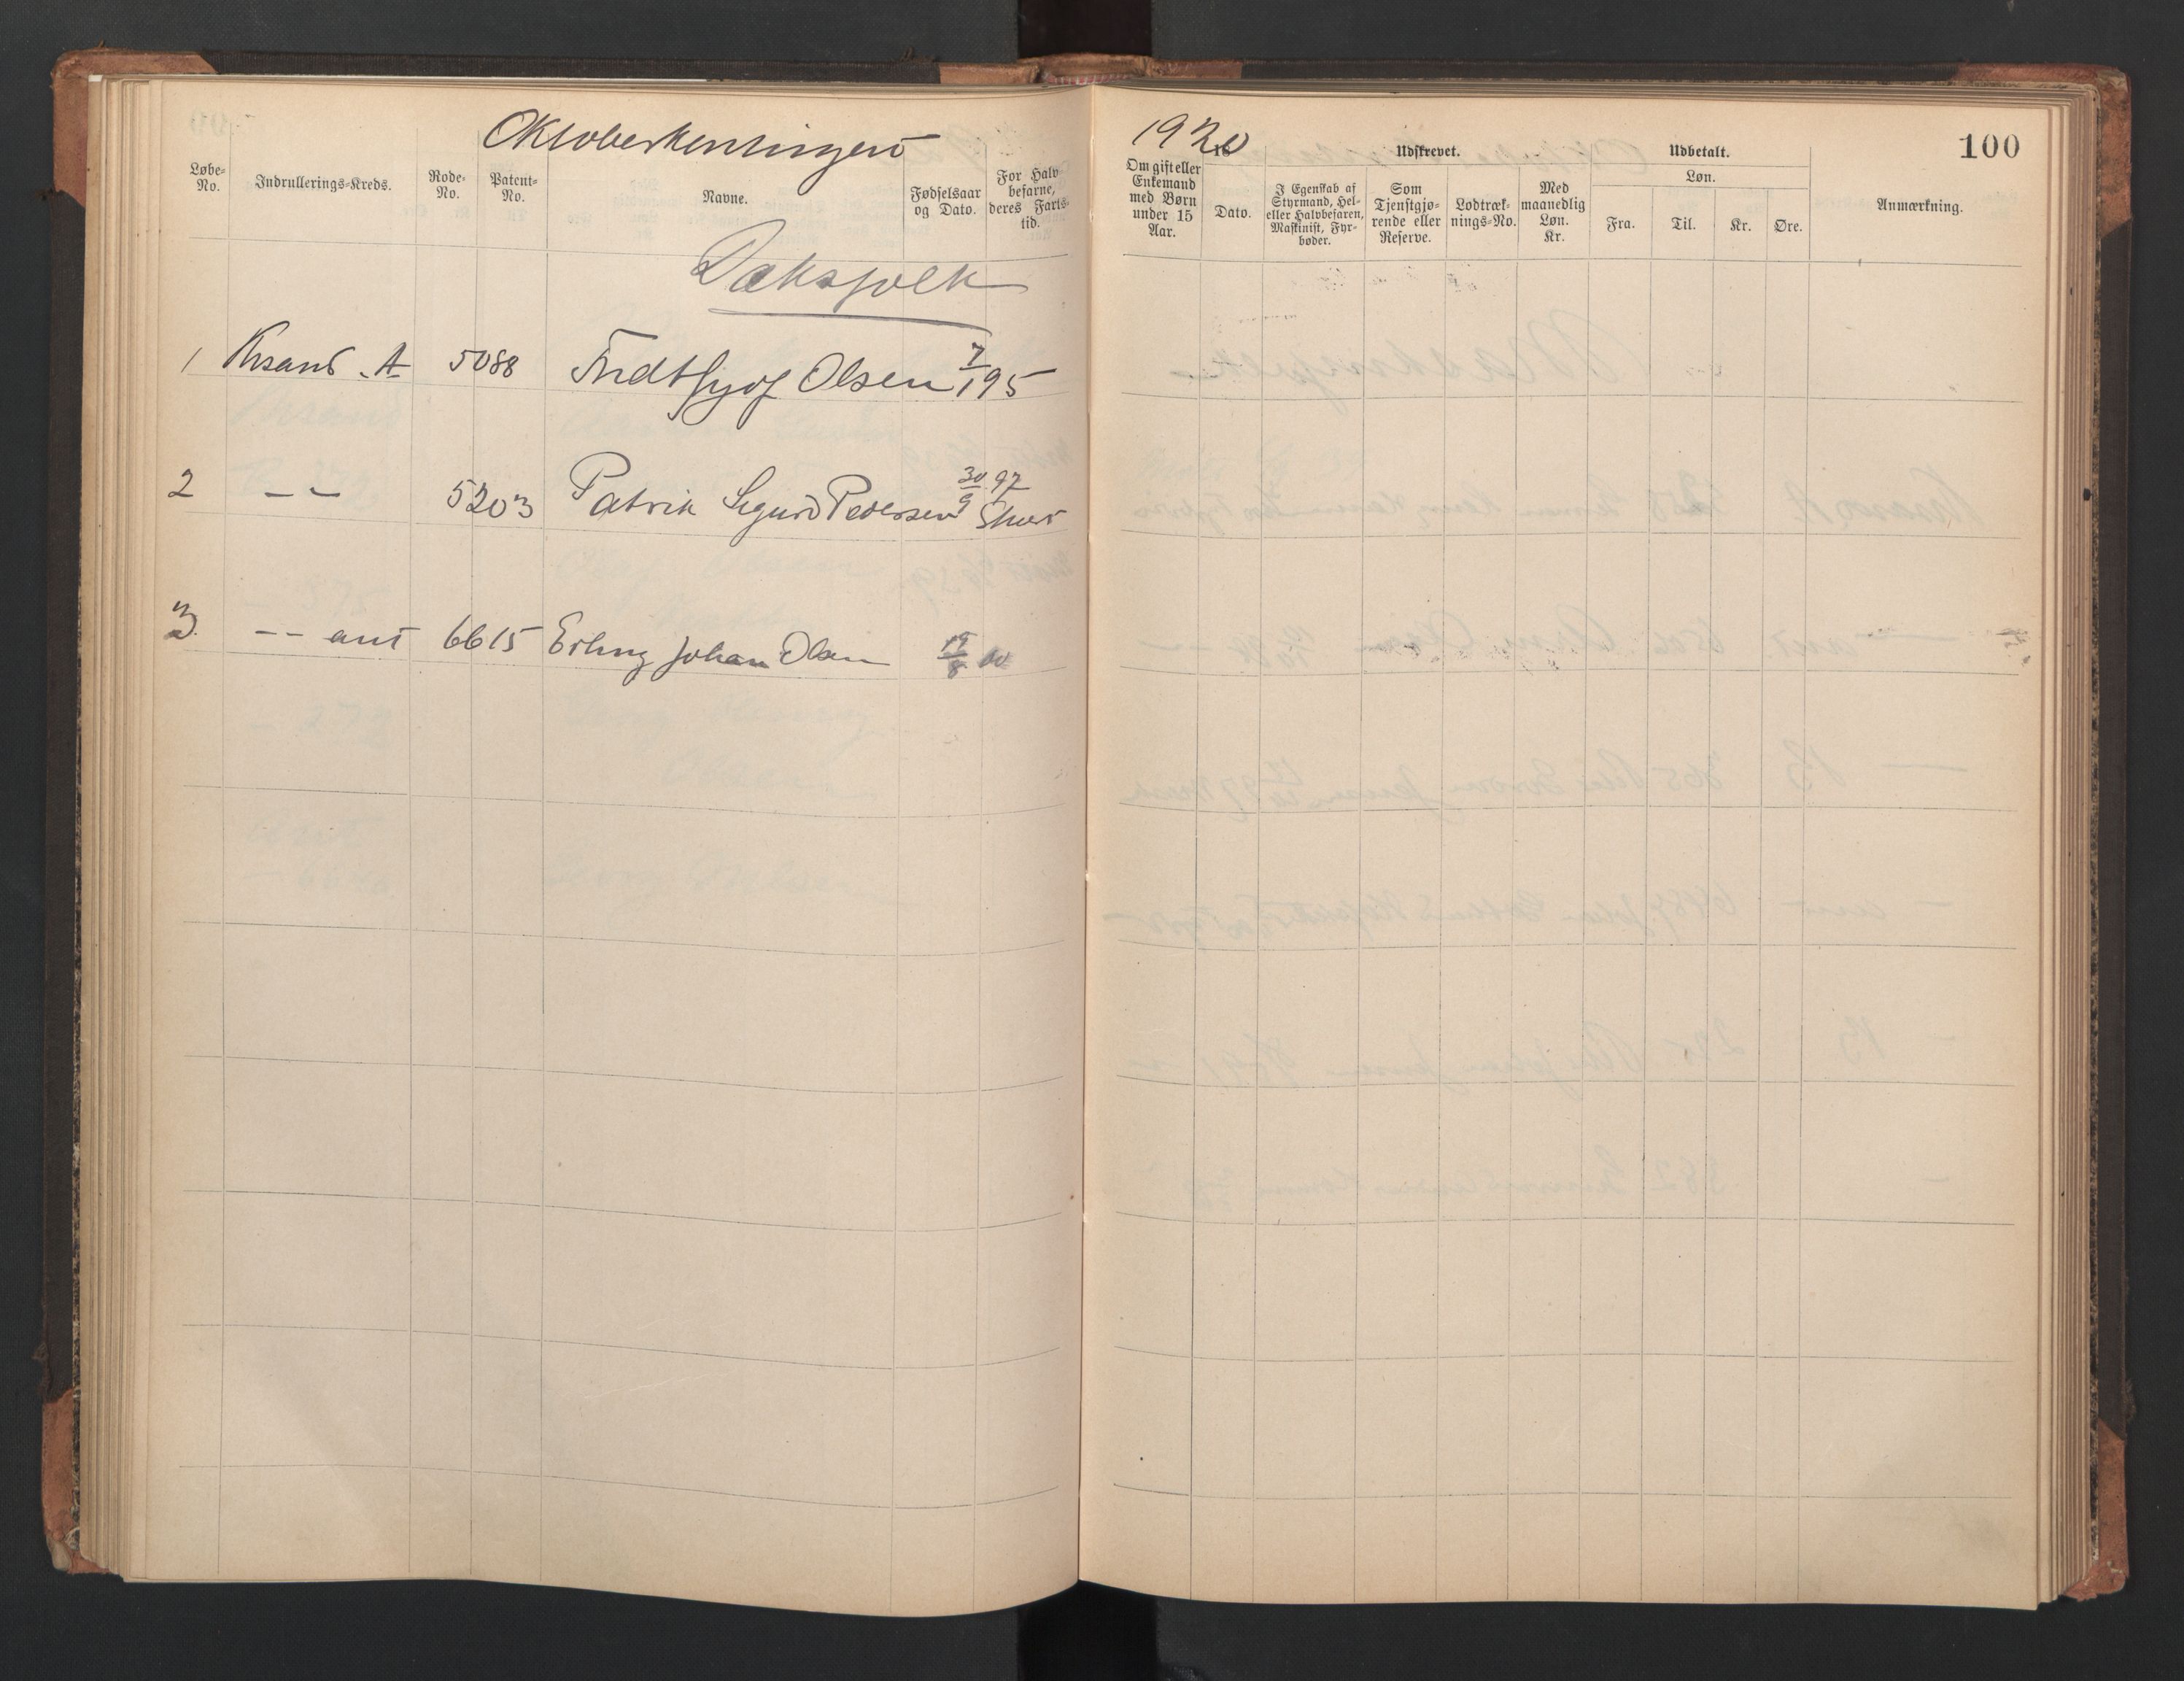 Oktoberhentningen
1920
100
Løbe-No.
Indrullerings-Kreds.
Rode-No.
Patent-No.
Navne.
Fødselsaar og Dato.
For Halvbefarne, deres Fartstid.
Om gift eller Enkemand med Børn under 15 Aar.
18
Dato.
Udskrevet.
I Egenskab af Styrmand, Hel- eller Halvbefaren, Maskinist, Fyrbøder.
Som Tjenstgjørende eller Reserve.
Lodtræknings-No.
Med maanedlig Løn. Kr.
Udbetalt.
Løn.
Fra.
Til.
Kr.
Øre.
Anmærkning.
Dæksfolk
1 Krsand. A 5088 Fridthjof Olsen 7/1 95
2 – – 5203 Patrik Sigurd Pedersen 30/9 97
3. – – ant 6615 Erling Johan Olsen 19/8 00